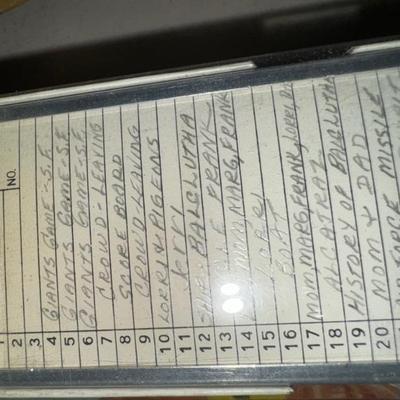 NO.
1
2
3
4 GIANTS GAME - S.F.
5 GIANTS GAME - S.F.
6 GIANTS GAME - S.F.
7 CROWD - LEAVING
8 SCORE BOARD
9 CROWD LEAVING
10 LORRI & PIGEONS
11
12 BALCLUTHA
13 FRANK
14 MOM, MARG, FRANK
15 LORRI
16 BOAT
17 MOM, MARG, FRANK, LORRI,
18 ALCATRAZ
19 HISTORY OF BALCLUTHA
20 MOM & DAD
FORCE MISSILE